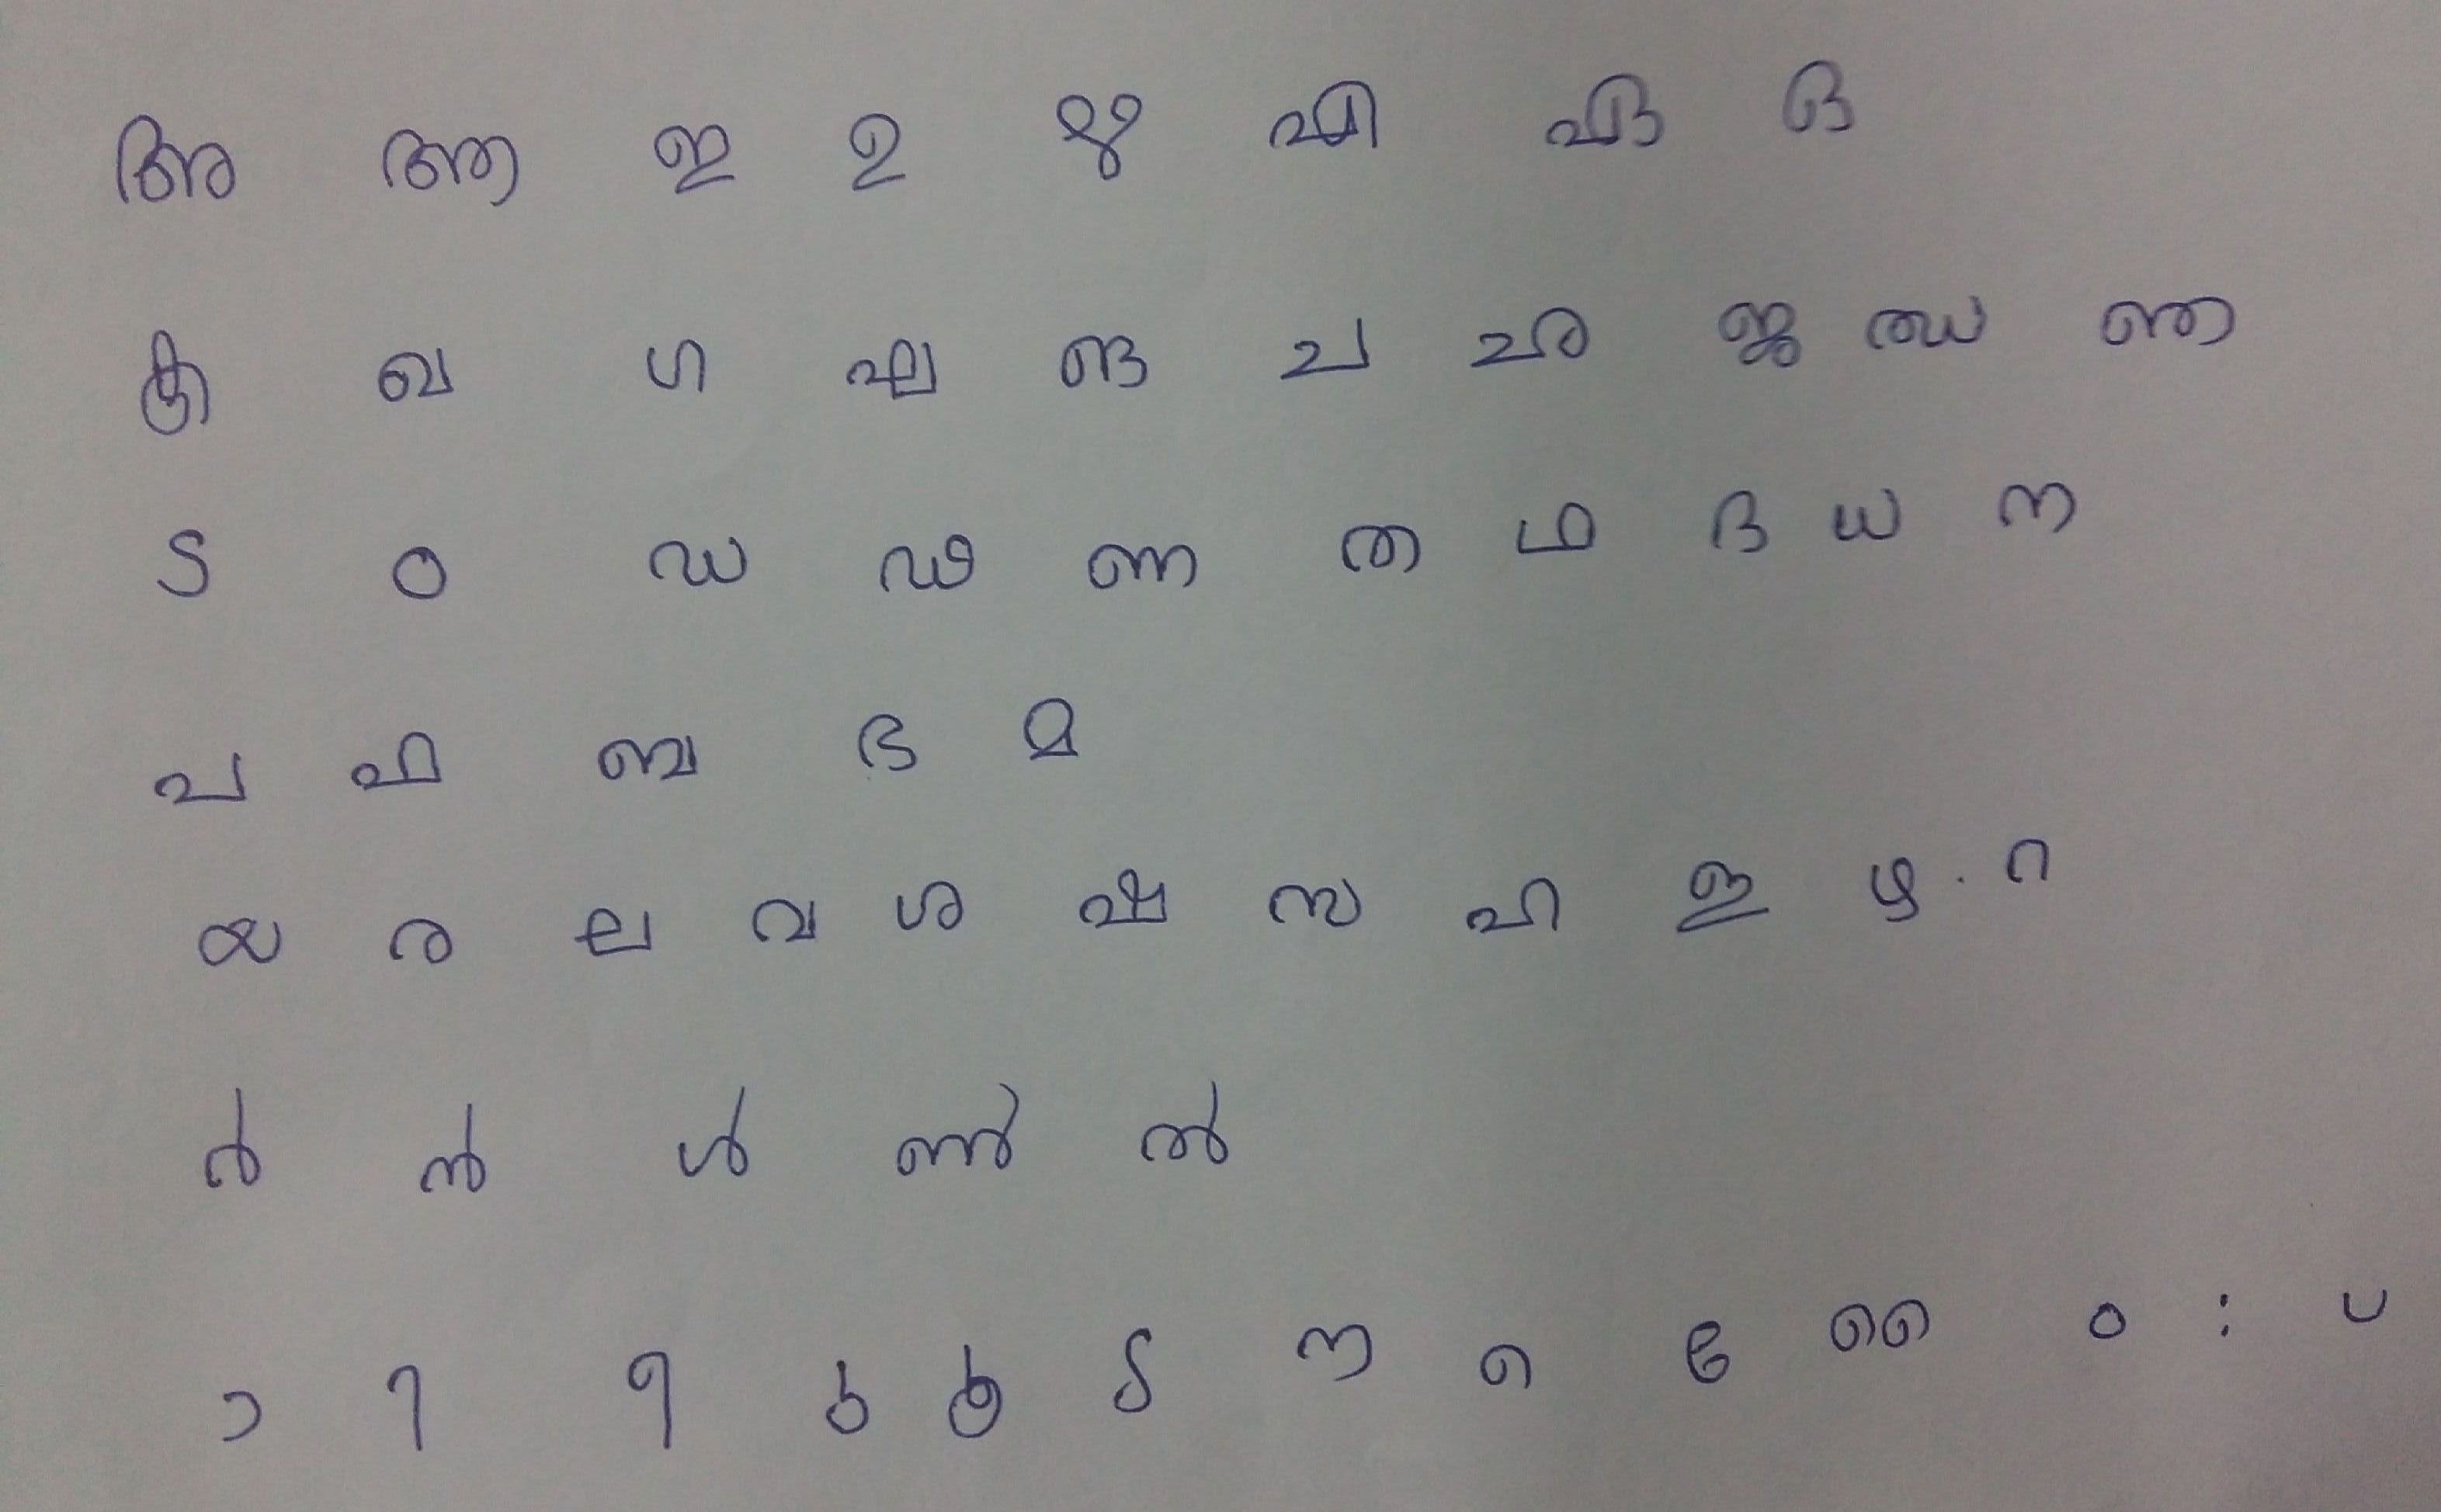 അ ആ ഇ ഉ ഋ എ ഏ ഒ
ക ഖ ഗ ഘ ങ ച ഛ ജ ഝ ഞ
ട ഠ ഡ ഢ ണ ത ഥ ദ ധ ന
പ ഫ ബ ഭ മ
യ ര ല വ ശ ഷ സ ഹ ള ഴ . റ
ർ ൻ ൾ ൺ ൽ
ാ ി ീ ു ൂ ൃ ന െ േ ൈ ം ഃ ്